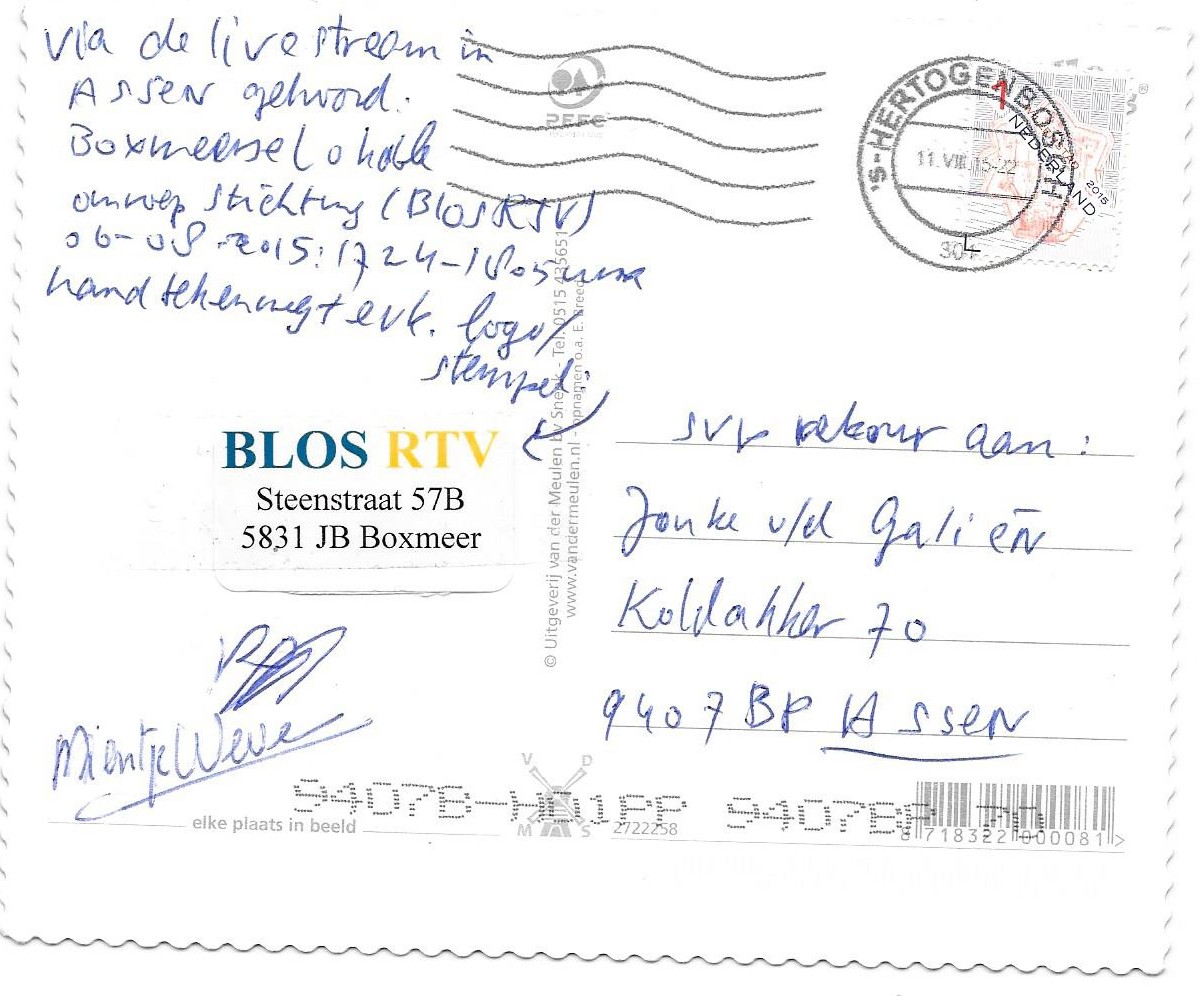 via de livestream in
Assen gehoord:
Boxmeerse Lokale
omroep stichting (BLOS RTV)
06-08-2015: 1724-1805 uur
handtekening + evt. logo/
stempel:
BLOS RTV
Steenstraat 57B
5831 JB Boxmeer
Mientje Wever
PEFC
'S-HERTOGENBOSCH
11.VIII.15-22
304
L
1
NEDERLAND
2015
© Uitgeverij van der Meulen bv Sneek - Tel. 0515 435651
www.vandermeulen.nl - opnamen o.a. E. Breed
svp retour aan:
Jouke v/d Galiën
Koldakker 70
9407 BP Assen
V D
M S
elke plaats in beeld
2722258
9407BP 70
8 718322 000081 >